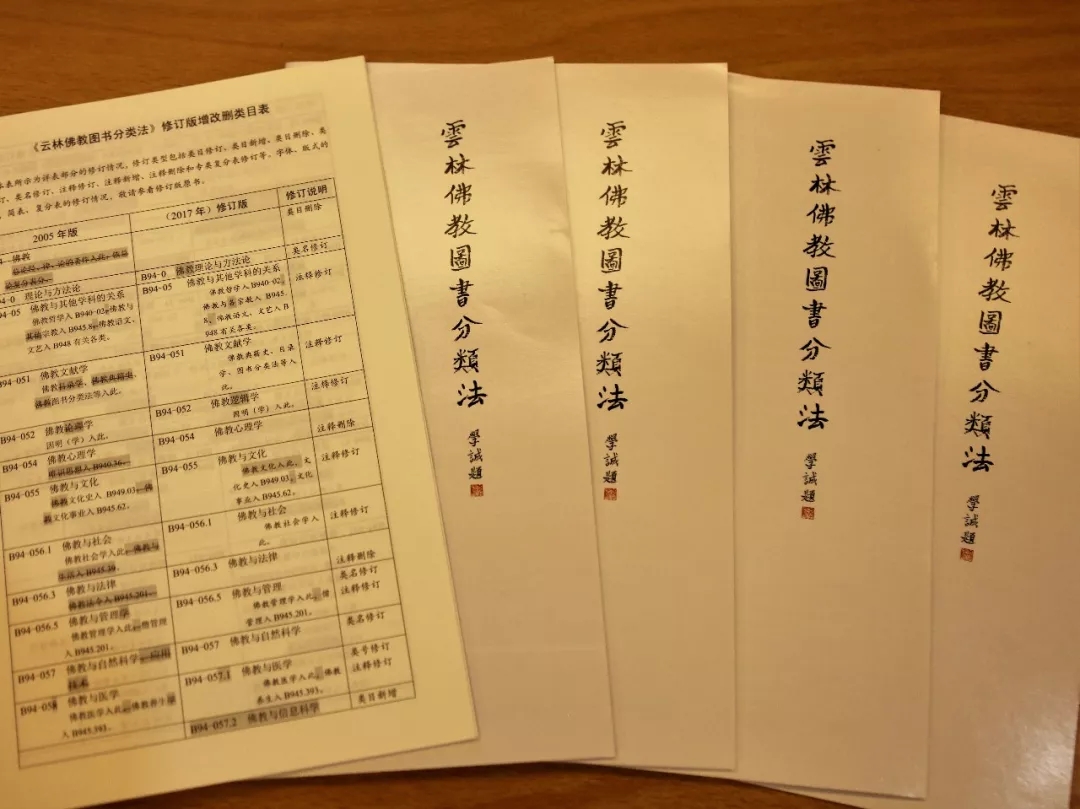 《云林佛教图书分类法》修订版增改删类目表
表所示为详表部分的修订情况，修订类型包括类目修订、类目新增、类目删除、类
、类名修订、注释修订、注释新增、注释删除和专类复分表修订等，字体、版式的
简表、复分表的修订情况，敬请参看修订版原书。
2005 年版
（2017 年）修订版
修订说明
佛教
类目删除
理论与方法论
B94-0 佛教理论与方法论
类名修订
佛教与其他学科的关系
佛教哲学入 B940-02，佛教与
宗教入 B945.8，佛教语文、
文艺入 B948 有关各类。
B94-05 佛教与其他学科的关系
佛教哲学入 B940-02，
佛教与各宗教入 B945.
8，佛教语文、文艺入 B
948 有关各类。
注释修订
B94-051 佛教文献学
佛教目录学、佛教典籍史、
佛教图书分类法等入此。
B94-051 佛教文献学
佛教典籍史、目录
学、图书分类法等入
此。
注释修订
B94-052 佛教论理学
因明（学）入此。
B94-052 佛教逻辑学
因明（学）入此。
注释修订
B94-054 佛教心理学
唯识思想入 B940.36。
B94-054 佛教心理学
注释删除
B94-055 佛教与文化
佛教文化史入 B949.03，佛
教文化事业入 B945.62。
B94-055 佛教与文化
佛教文化入此，文
化史入 B949.03，文化
事业入 B945.62。
注释修订
B94-056.1 佛教与社会
佛教社会学入此，佛教与
生活入 B945.39。
B94-056.1 佛教与社会
佛教社会学入
此。
注释修订
B94-056.3 佛教与法律
佛教法令入 B945.201。
B94-056.3 佛教与法律
注释删除
B94-056.5 佛教与管理学
佛教管理学入此，僧管理
入 B945.201。
B94-056.5 佛教与管理
佛教管理学入此，僧
管理入 B945.201。
类名修订
注释修订
B94-057 佛教与自然科学、应用
技术
B94-057 佛教与自然科学
类名修订
B94-058 佛教与医学
佛教医学入此，佛教养生学
入 B945.393。
B94-057.1 佛教与医学
佛教医学入此，佛教
养生入 B945.393。
类号修订
注释修订
B94-057.2 佛教与信息科学
类目新增
雲林佛教圖書分類法
學誠題
雲林佛教圖書分類法
學誠題
雲林佛教圖書分類法
學誠題
雲林佛教圖書分類法
學誠題